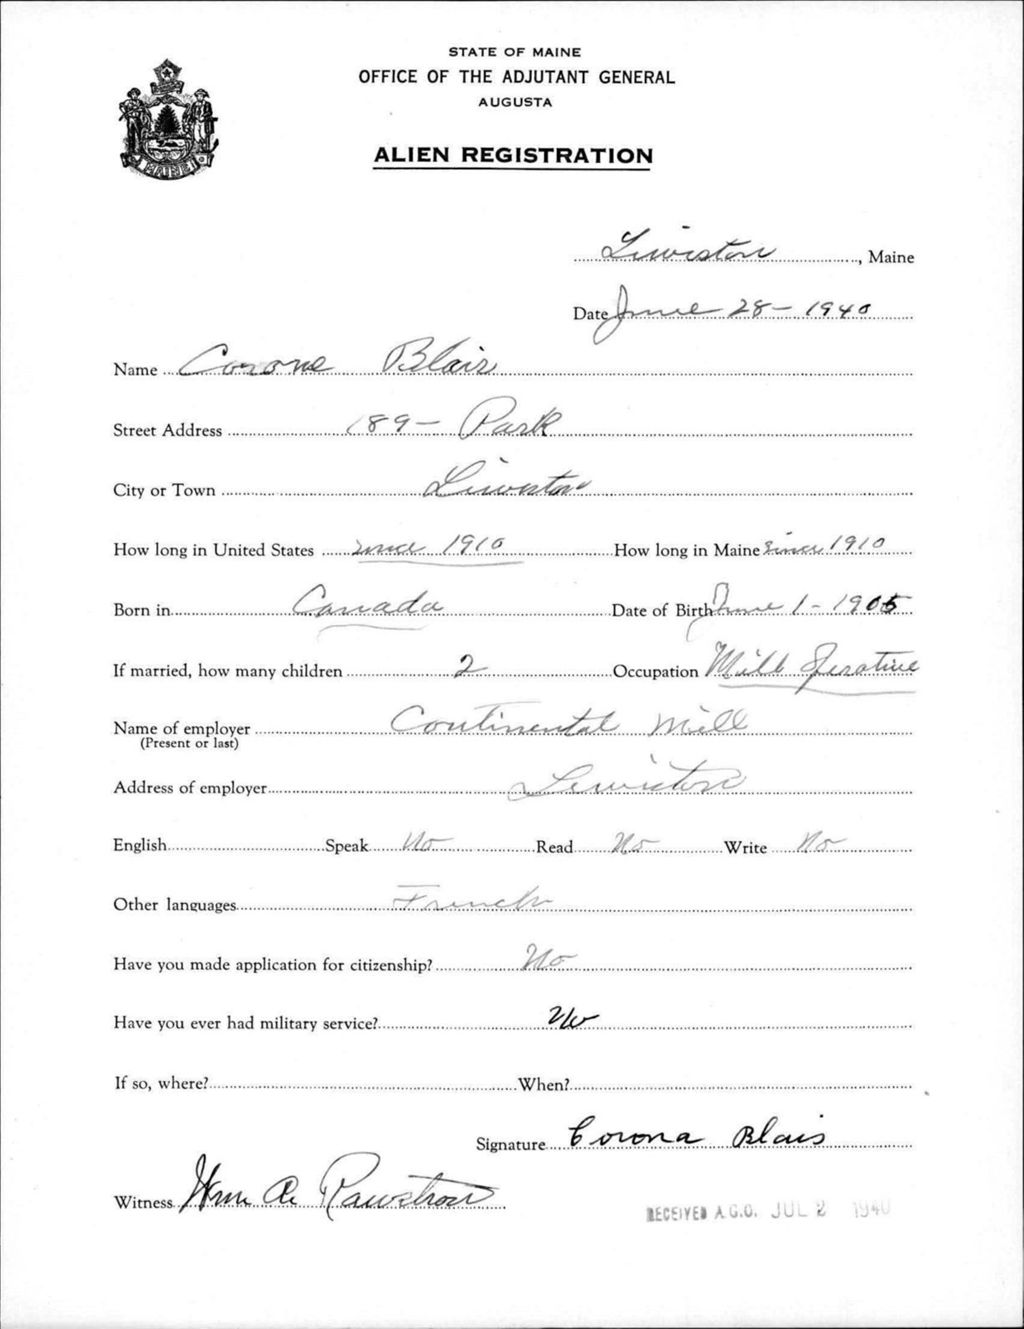 STATE OF MAINE
OFFICE OF THE ADJUTANT GENERAL
AUGUSTA
MAINE
ALIEN REGISTRATION
Lewiston, Maine
Date June 28 - 1940
Name Corone Blair
Street Address 189 - Park
City or Town Lewiston
How long in United States since 1910 How long in Maine since 1910
Born in Canada Date of Birth June 1 - 1905
If married, how many children 2 Occupation Mill Operative
Name of employer Continental Mill
(Present or last)
Address of employer Lewiston
English Speak No Read No Write No
Other languages French
Have you made application for citizenship? No
Have you ever had military service? No
If so, where? When?
Signature Corona Blais
Witness Wm A. Rawstron
RECEIVED A.G.O. JUL 2 1940